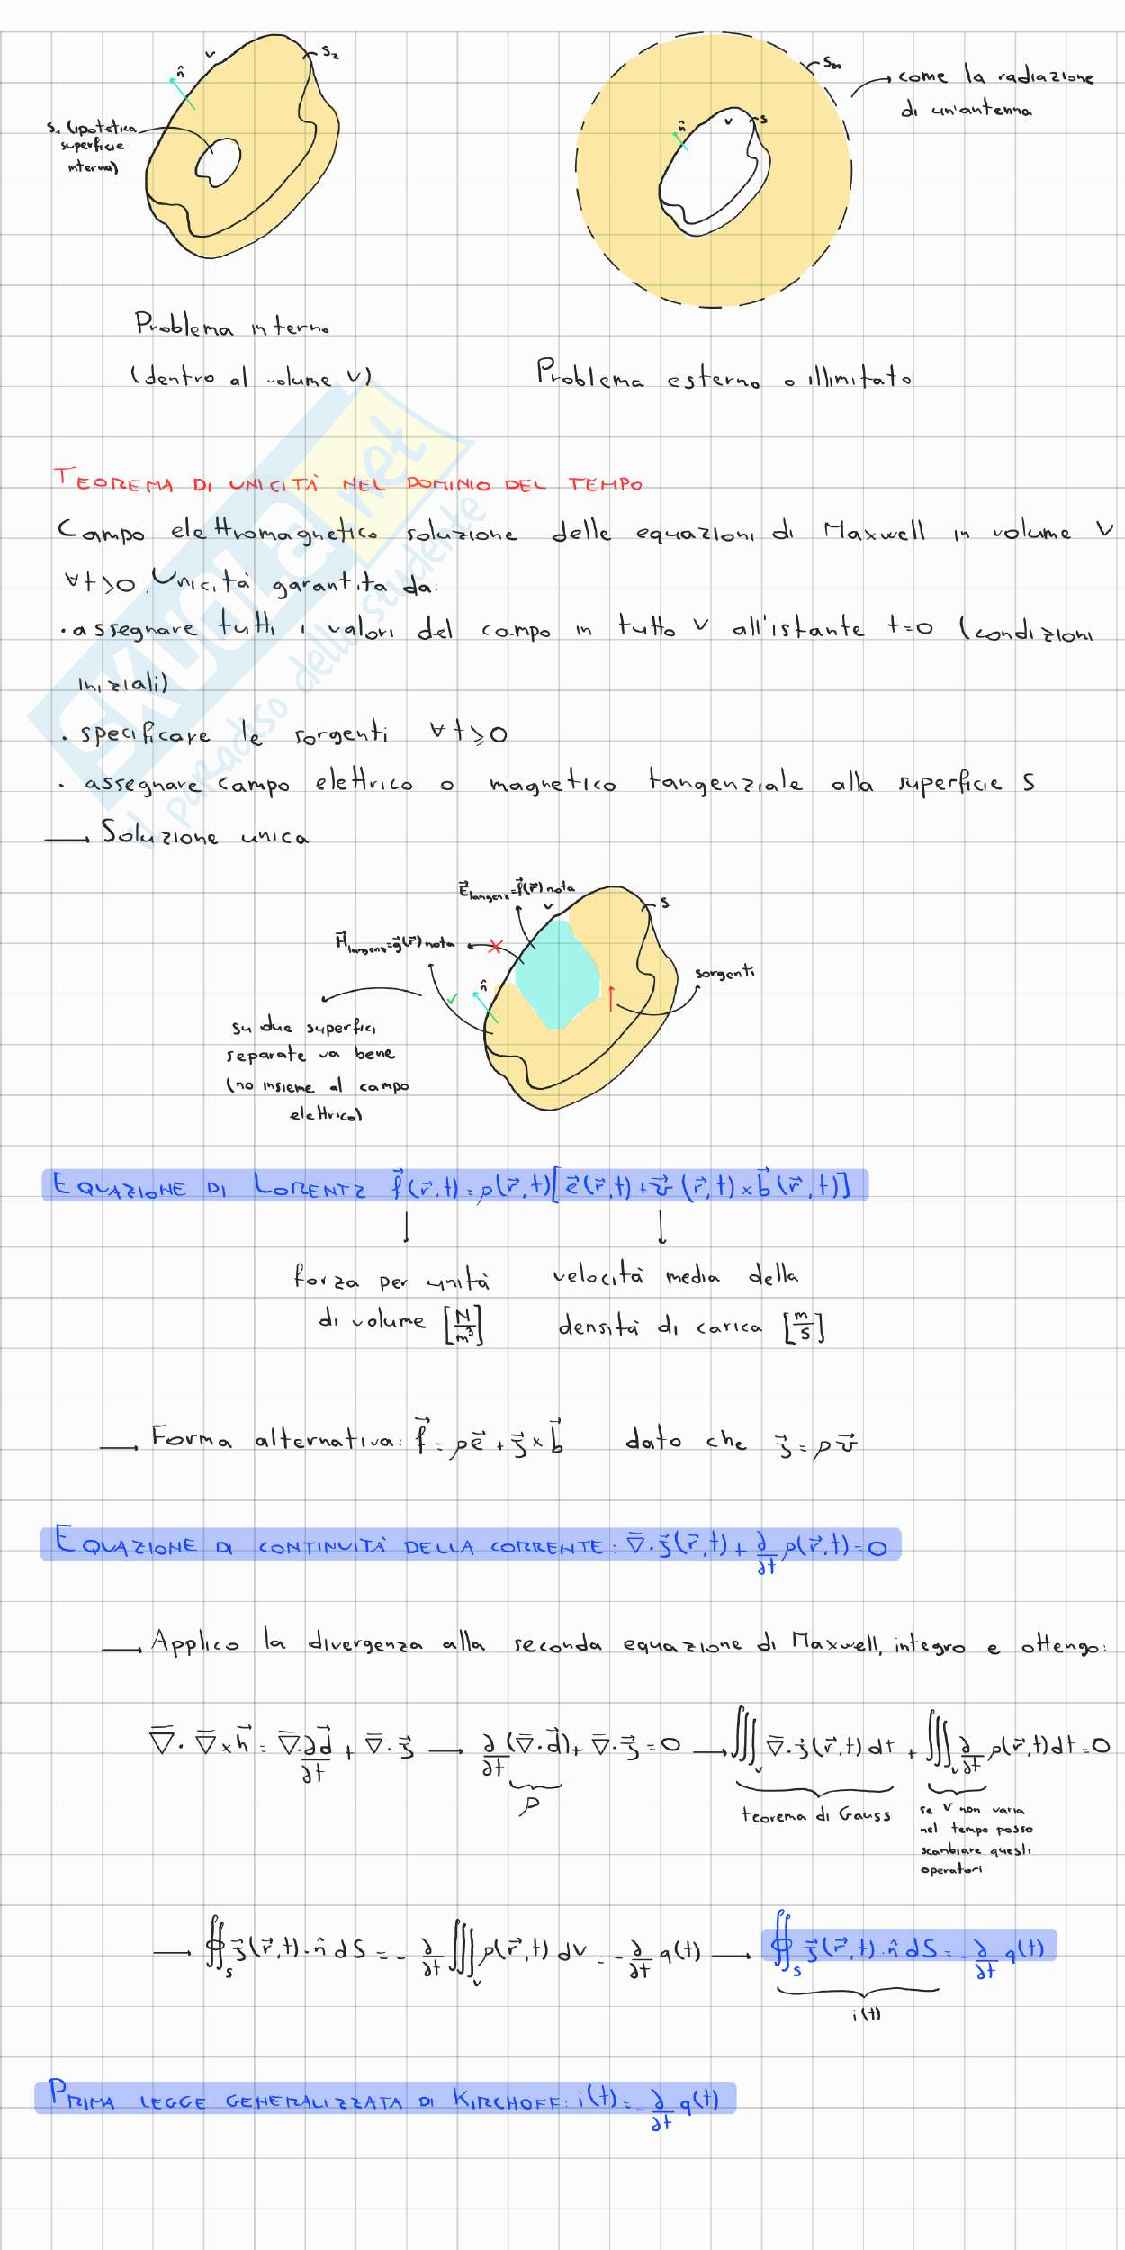 S₁ (ipotetica
superficie
interna)
n̂
V
S₂
Problema interno
(dentro al volume V)
n̂
V
S
S∞
come la radiazione
di un'antenna
Problema esterno o illimitato
SKUOLA.net
il paradiso dello studente
TEOREMA DI UNICITÀ NEL DOMINIO DEL TEMPO
Campo elettromagnetico soluzione delle equazioni di Maxwell in volume V
∀t>0. Unicità garantita da:
• assegnare tutti i valori del campo in tutto V all'istante t=0 (condizioni
iniziali)
• specificare le sorgenti ∀t⩾0
• assegnare campo elettrico o magnetico tangenziale alla superficie S
→ Soluzione unica
E⃗tangenz=f⃗(r⃗) nota
V
S
H⃗tangenz=g⃗(r⃗) nota
n̂
sorgenti
su due superfici
separate va bene
(no insieme al campo
elettrico)
EQUAZIONE DI LORENTZ f⃗(r⃗,t)=ρ(r⃗,t)[e⃗(r⃗,t)+v⃗(r⃗,t)×b⃗(r⃗,t)]
forza per unità
di volume [N/m³]
velocità media della
densità di carica [m/s]
→ Forma alternativa: f⃗=ρe⃗+J⃗×b⃗ dato che J⃗=ρv⃗
EQUAZIONE DI CONTINUITÀ DELLA CORRENTE: ∇̅·J⃗(r⃗,t)+∂/∂t ρ(r⃗,t)=0
→ Applico la divergenza alla seconda equazione di Maxwell, integro e ottengo:
∇̅·∇̅×h⃗=∇̅·∂d⃗/∂t+∇̅·J⃗ → ∂/∂t(∇̅·d⃗)+∇̅·J⃗=0 → ∭_V ∇̅·J⃗(r⃗,t)dτ+∭_V ∂/∂t ρ(r⃗,t)dτ=0
ρ
teorema di Gauss
se V non varia
nel tempo posso
scambiare questi
operatori
→ ∯_S J⃗(r⃗,t)·n̂ dS=-∂/∂t ∭_V ρ(r⃗,t) dV=-∂/∂t q(t) → ∯_S J⃗(r⃗,t)·n̂ dS=-∂/∂t q(t)
i(t)
PRIMA LEGGE GENERALIZZATA DI KIRCHOFF: i(t)=-∂/∂t q(t)